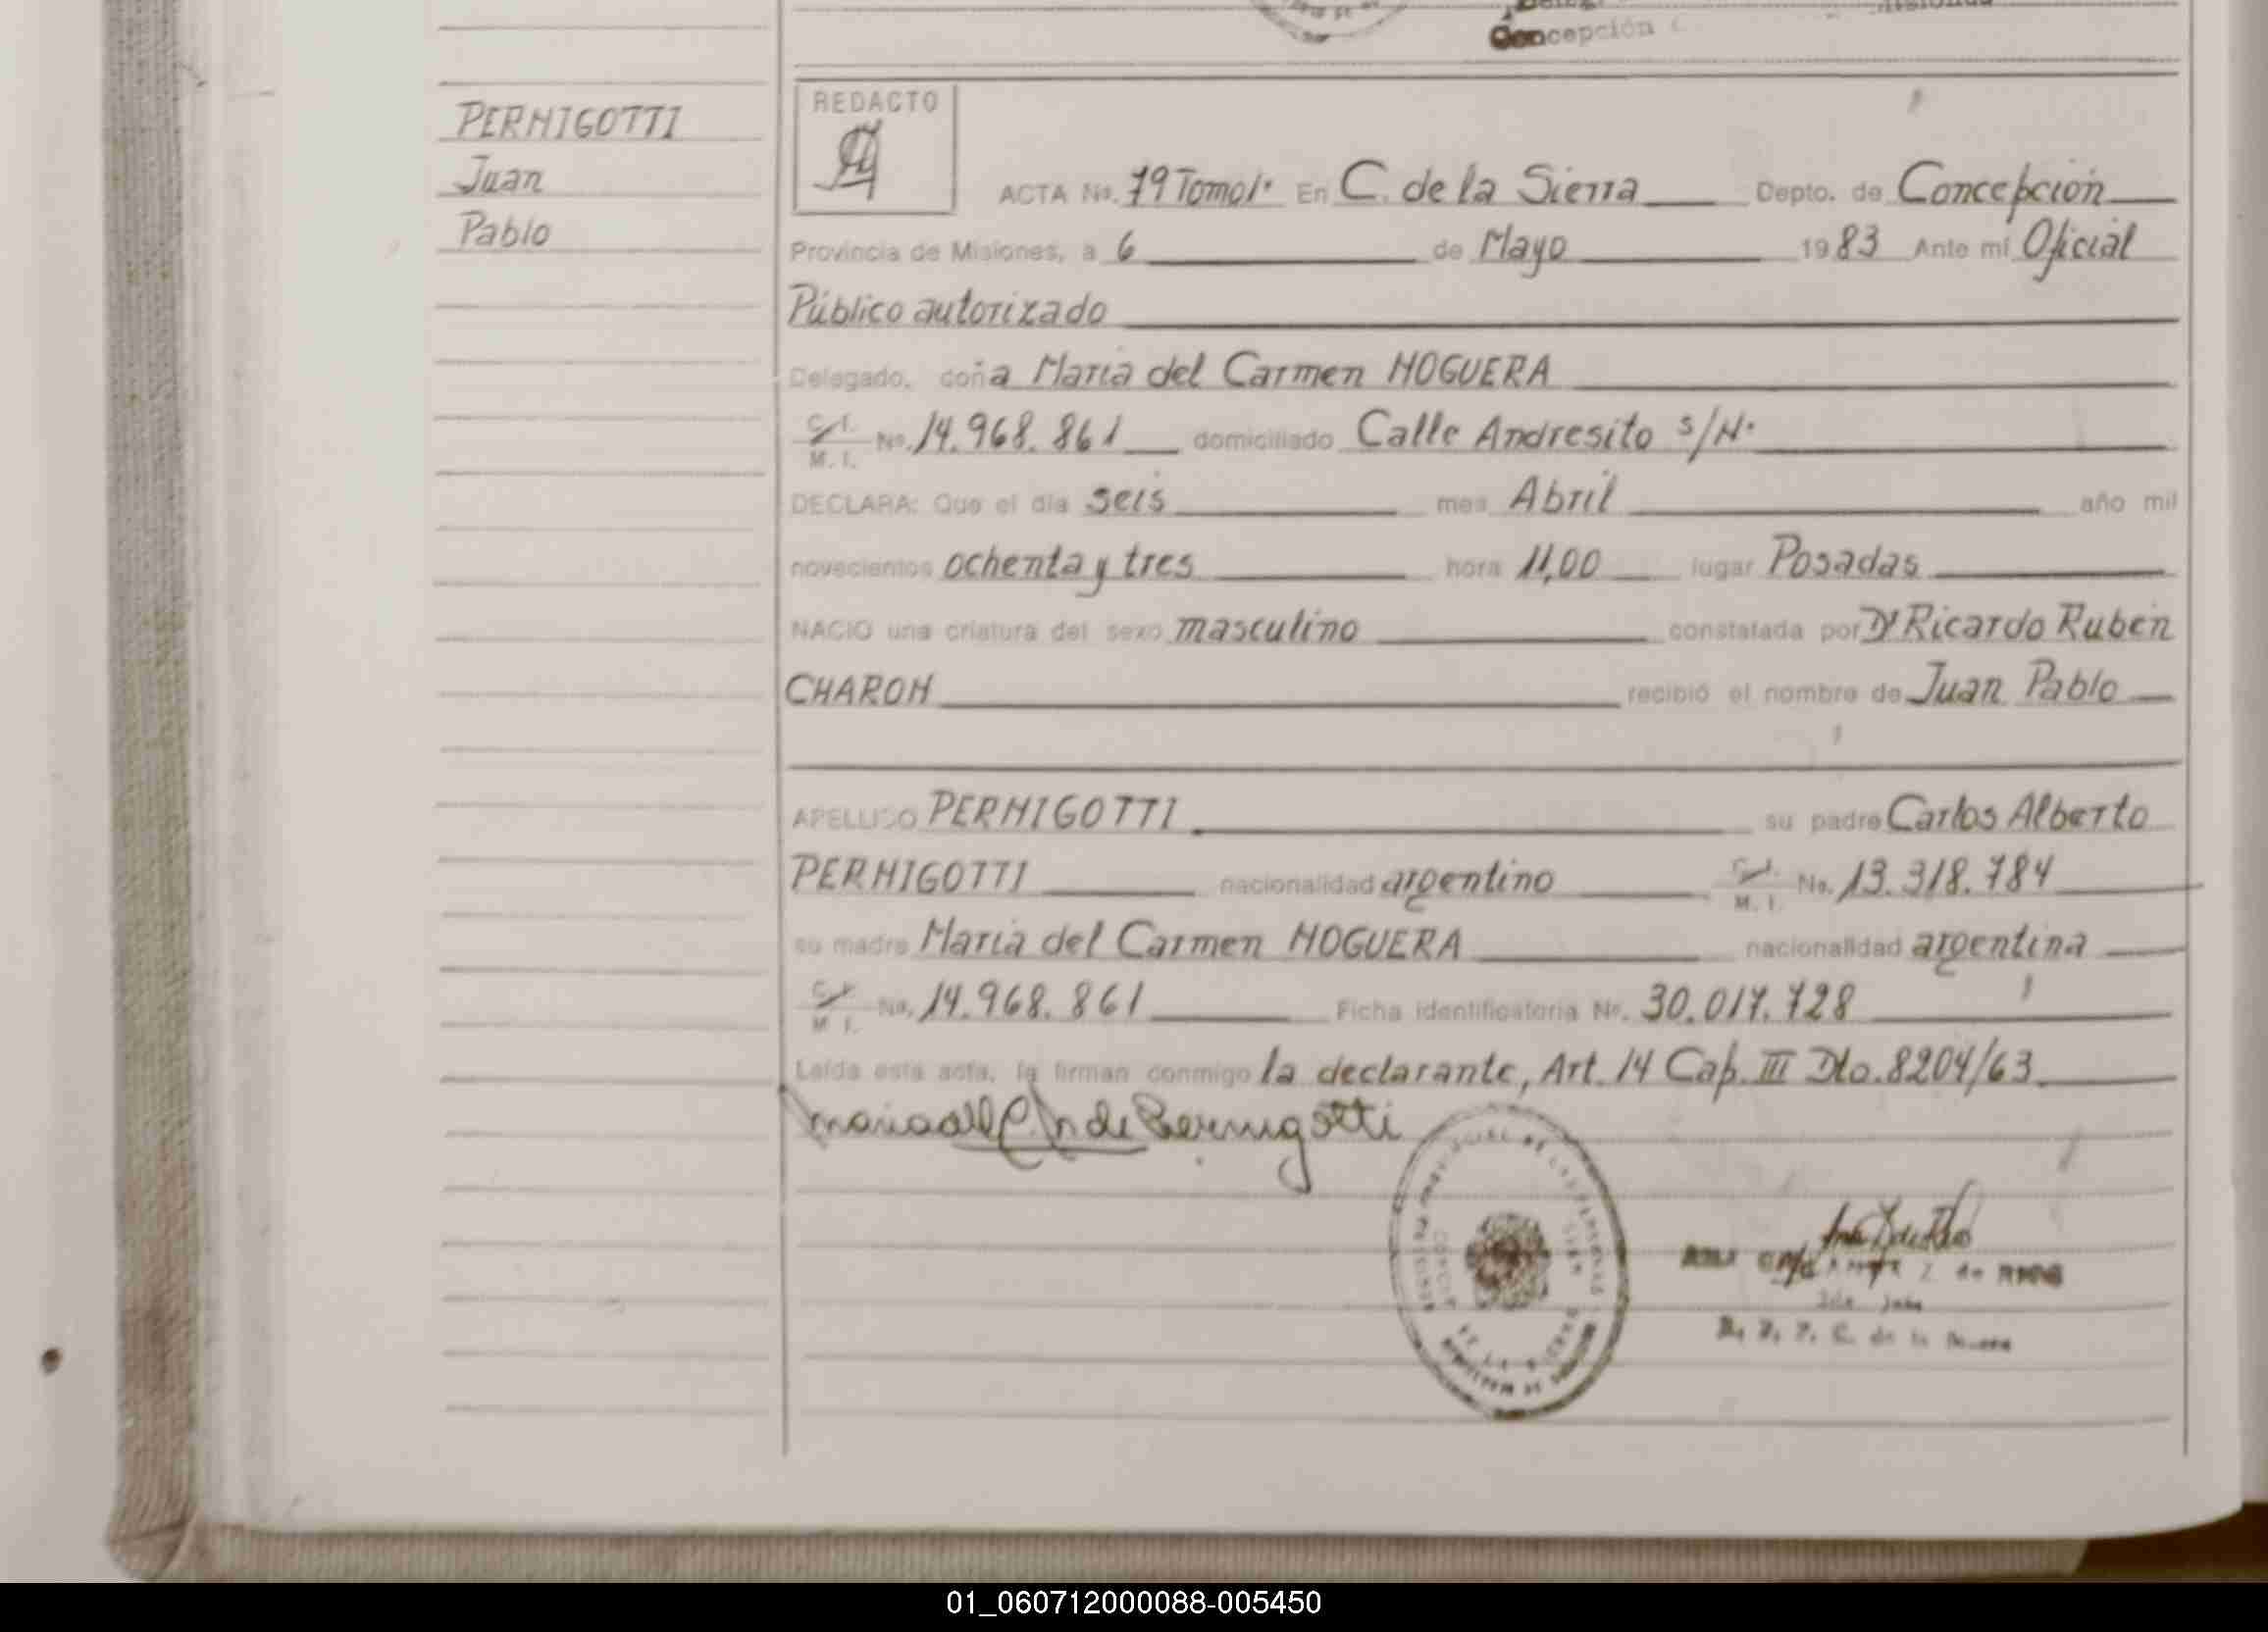 Concepción
PERNIGOTTI
Juan
Pablo
REDACTO
ACTA No. 79 Tomo 1° En C. de la Sierra Depto. de Concepción
Provincia de Misiones, a 6 de Mayo 1983 Ante mí Oficial
Público autorizado
Delegado, doña María del Carmen NOGUERA
C. I. M. I. No. 14.968.861 domiciliado Calle Andresito s/N°
DECLARA: Que el día seis mes Abril año mil
novecientos ochenta y tres hora 11,00 lugar Posadas
NACIO una criatura del sexo masculino constatada por Dr Ricardo Rubén
CHARON recibió el nombre de Juan Pablo
APELLIDO PERNIGOTTI su padre Carlos Alberto
PERNIGOTTI nacionalidad argentino C. I. M. I. No. 13.318.784
su madre María del Carmen NOGUERA nacionalidad argentina
C. I. M. I. No. 14.968.861 Ficha identificatoria No. 30.017.728
Leída esta acta, la firman conmigo la declarante, Art. 14 Cap. III Dto. 8204/63.
maria del C. N de Pernigotti
01_060712000088-005450